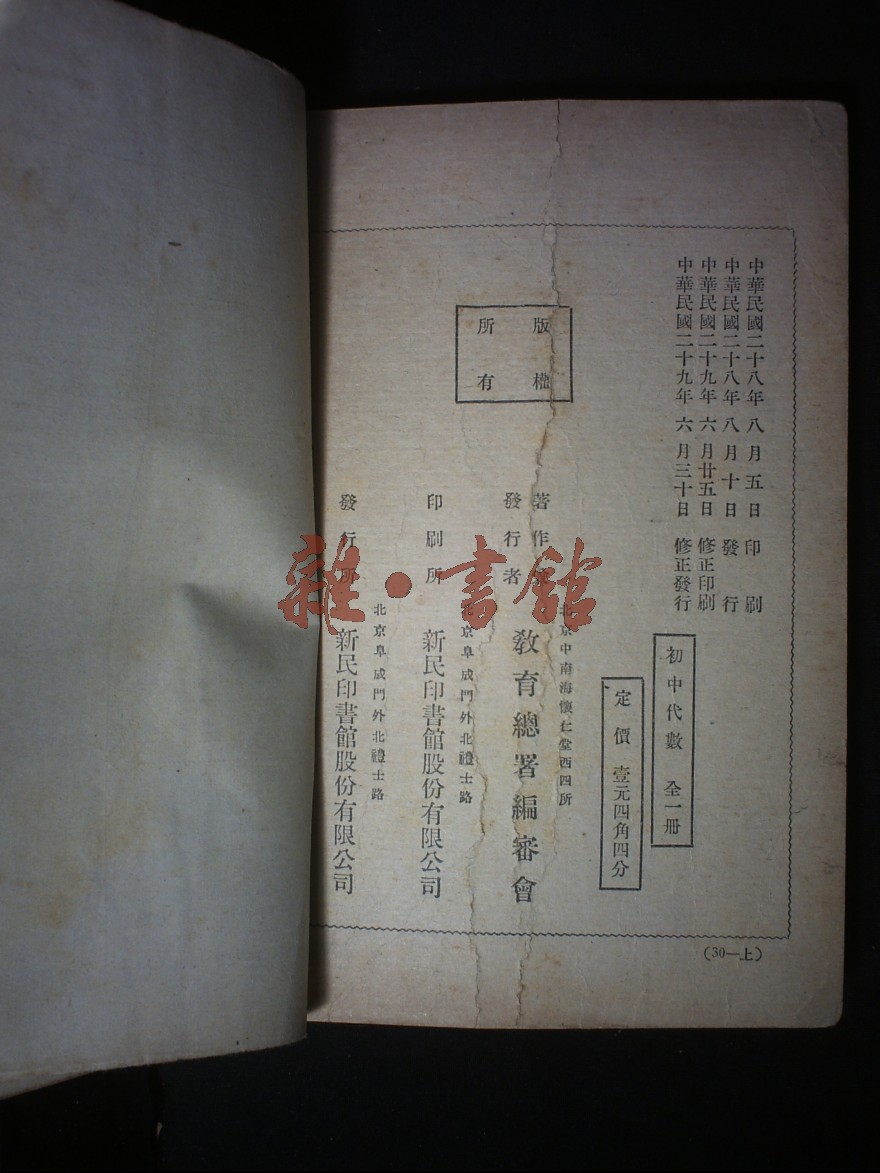 中華民國二十八年八月五日　印刷
中華民國二十八年八月十日　發行
中華民國二十九年六月廿五日　修正印刷
中華民國二十九年六月三十日　修正發行
初中代數　全一冊
定價　壹元四角四分
版權
所有
北京中南海懷仁堂西四所
著作
發行者
教育總署編審會
北京阜成門外北禮士路
印刷所　新民印書館股份有限公司
北京阜成門外北禮士路
發行所　新民印書館股份有限公司
（30—上）
雜·書館